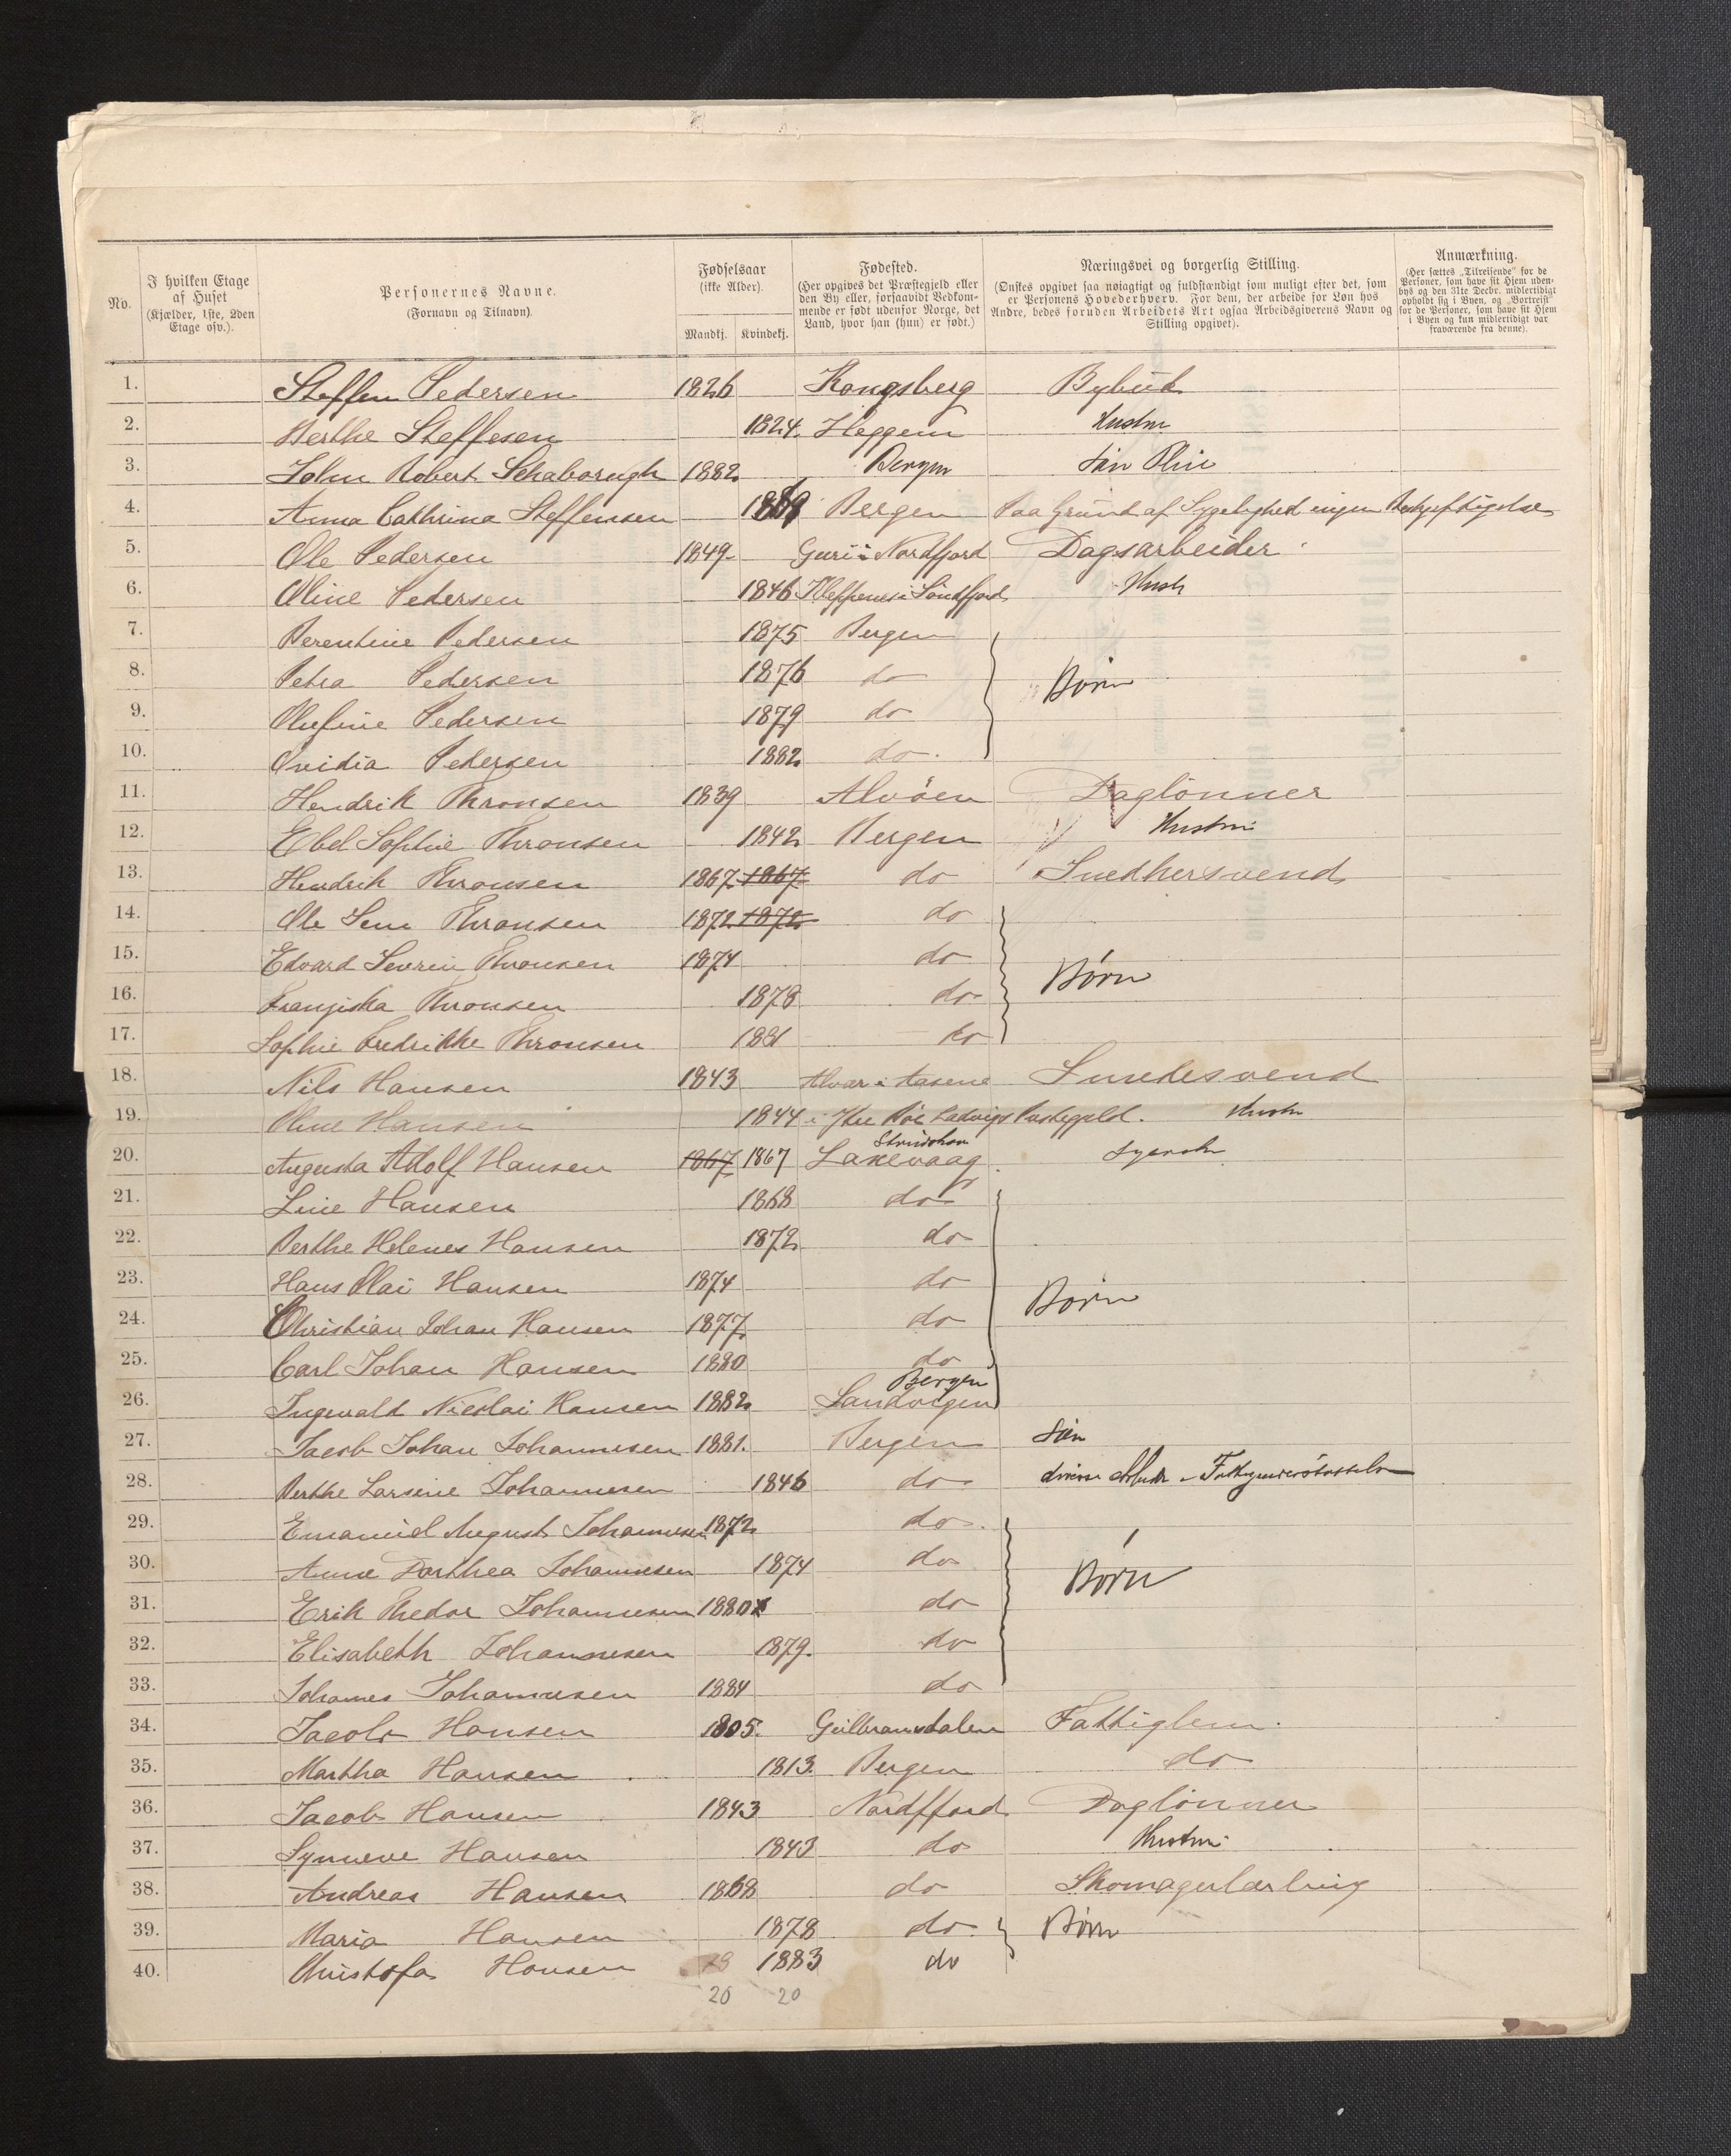 No.
I hvilken Etage af Huset (Kjælder, 1ste, 2den Etage osv.).
Personernes Navne. (Fornavn og Tilnavn).
Fødselsaar (ikke Alder). Mandkj. Kvindekj.
Fødested. (Her opgives det Præstegjeld eller den By eller, forsaavidt Vedkommende er født udenfor Norge, det Land, hvor han (hun) er født.)
Næringsvei og borgerlig Stilling. (Ønskes opgivet saa nøiagtigt og fuldstændigt som muligt efter det, som er Personens Hovederhverv. For dem, der arbeide for Løn hos Andre, bedes foruden Arbeidets Art ogsaa Arbeidsgiverens Navn og Stilling opgivet).
Anmærkning. (Her sættes „Tilreisende" for de Personer, som have sit Hjem udenbys og den 31te Decbr. midlertidigt opholdt sig i Byen, og „Bortreist" for de Personer, som have sit Hjem i Byen og kun midlertidigt var fraværende fra denne).
1. Steffen Pedersen 1826 Kongsberg Bybud
2. Berthe Steffesen 1824. Heggem Hustru
3. John Robert Schaborugh 1882 Bergen
4. Anna Cathrina Steffensen Bergen Paa Grund af Sygelighed ingen Beskjeftigelse
5. Ole Pedersen 1849 Nordfjord Dagsarbeider
6. Oline Pedersen 1846 Søndfjord Hust
7. Berentine Pedersen 1875 Bergen
8. Petra Pedersen 1876 do Børn
9. Olufine Pedersen 1879 do
10. Ovidia Pedersen 1882 do
11. Hendrik Thronsen 1839 Alvøen Daglønner
12. Ebel Sophie Thronsen 1842 Bergen Hustru
13. Hendrik Thronsen 1867 1867 do Snedkersvend
14. Ole Sem Thronsen 1872 1872 do
15. Edvard Severin Thronsen 1874 do
16. Franziska Thronsen 1878 do Børn
17. Sophie Fredrikke Thronsen 1881 do
18. Nils Hansen 1843 i Aasene Smedesvend
19. Oline Hansen 1844 Hustr
20. Augusta Adolf Hansen 1867 1867 Laxevaag Syerske
21. Line Hansen 1868 do
22. Berthe Helenes Hansen 1872 do
23. Hans Olai Hansen 1874 do
24. Christian Johan Hansen 1877 do Børn
25. Carl Johan Hansen 1880 do
Bergen
26. Ingevald Nicolai Hansen 1882 Sandvigen
27. Jacob Johan Johannesen 1881. Bergen Søn
28. Berthe Larsine Johannesen 1846 do
29. Emanuel August Johannesen 1872 do
30. Anne Dorthea Johannesen 1874 do Børn
31. Erik Thedor Johannesen 1880 do
32. Elisabeth Johannesen 1879. do
33. Johannes Johannesen 1884 do
34. Jacob Hansen 1805. Gulbransdalen Fattiglem.
35. Martha Hansen 1813. Bergen do
36. Jacob Hansen 1843 Nordfjord Daglønner
37. Synneve Hansen 1843 do Hustru
38. Andreas Hansen 1868 do Skomagerlærling
39. Maria Hansen 1878 do Børn
40. Christofa Hansen 1883 do
20 20